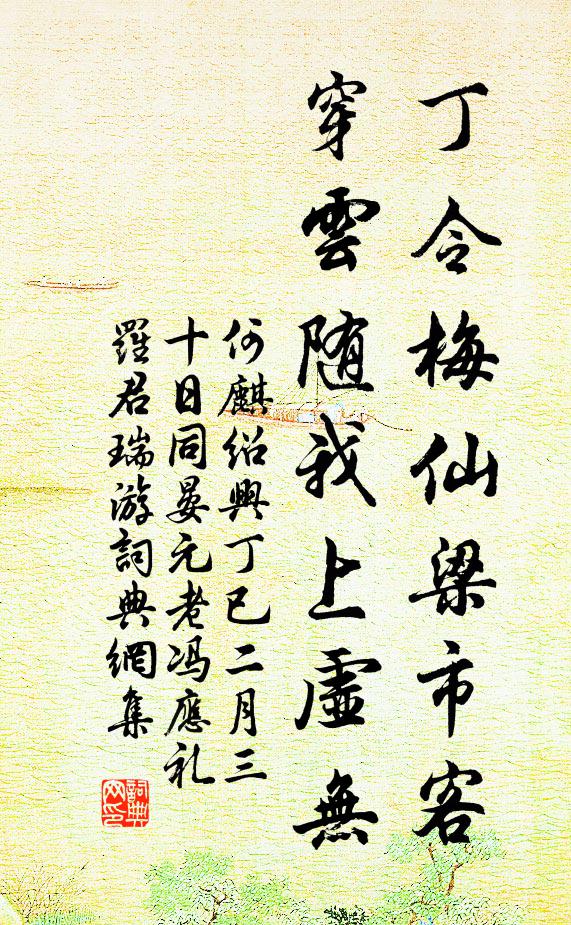 丁令梅仙梁市客
穿雲随我上虛無
何麒紹興丁巳二月三
十日同晏元老馮應礼
羅君瑞游詞典網集
詞典網印